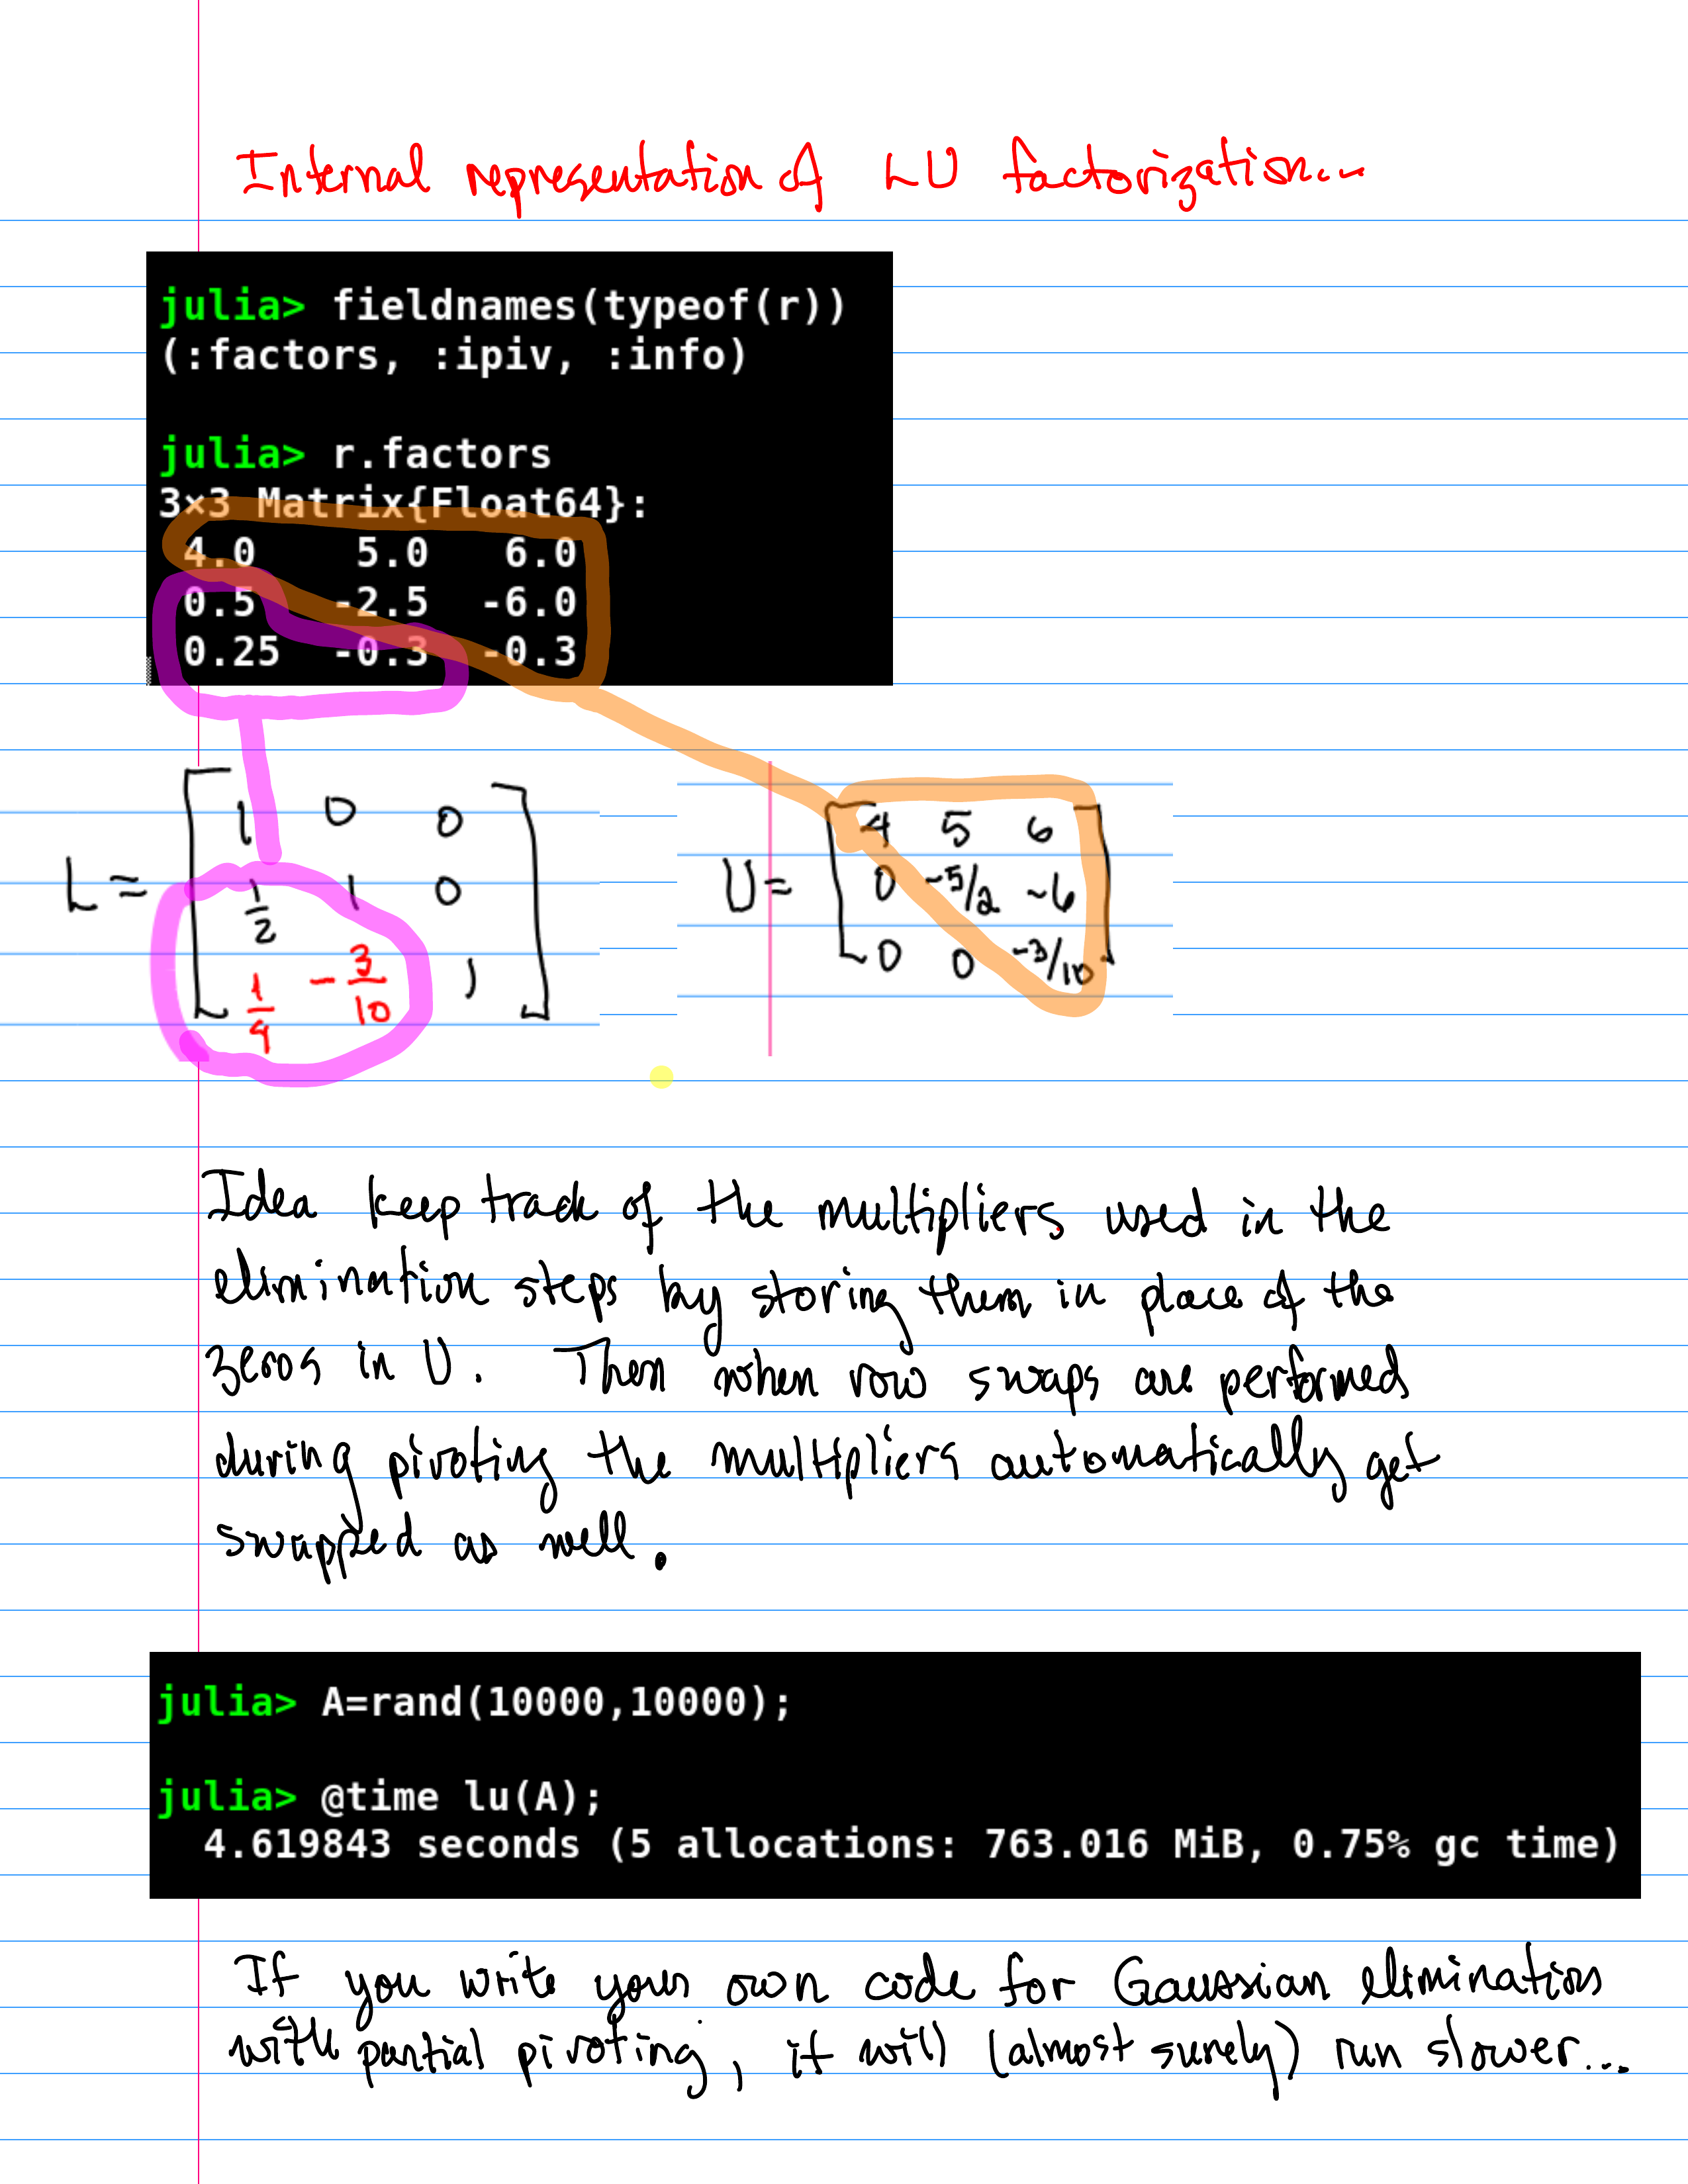 Internal representation of LU factorization...
julia> fieldnames(typeof(r))
(:factors, :ipiv, :info)
julia> r.factors
3×3 Matrix{Float64}:
4.0 5.0 6.0
0.5 -2.5 -6.0
0.25 -0.3 -0.3
L = [ 1 0 0
1/2 1 0
1/4 -3/10 1 ]
U = [ 4 5 6
0 -5/2 -6
0 0 -3/10 ]
Idea keep track of the multipliers used in the
elimination steps by storing them in place of the
zeros in U. Then when row swaps are performed
during pivoting the multipliers automatically get
swapped as well.
julia> A=rand(10000,10000);
julia> @time lu(A);
4.619843 seconds (5 allocations: 763.016 MiB, 0.75% gc time)
If you write your own code for Gaussian elimination
with partial pivoting, it will (almost surely) run slower...